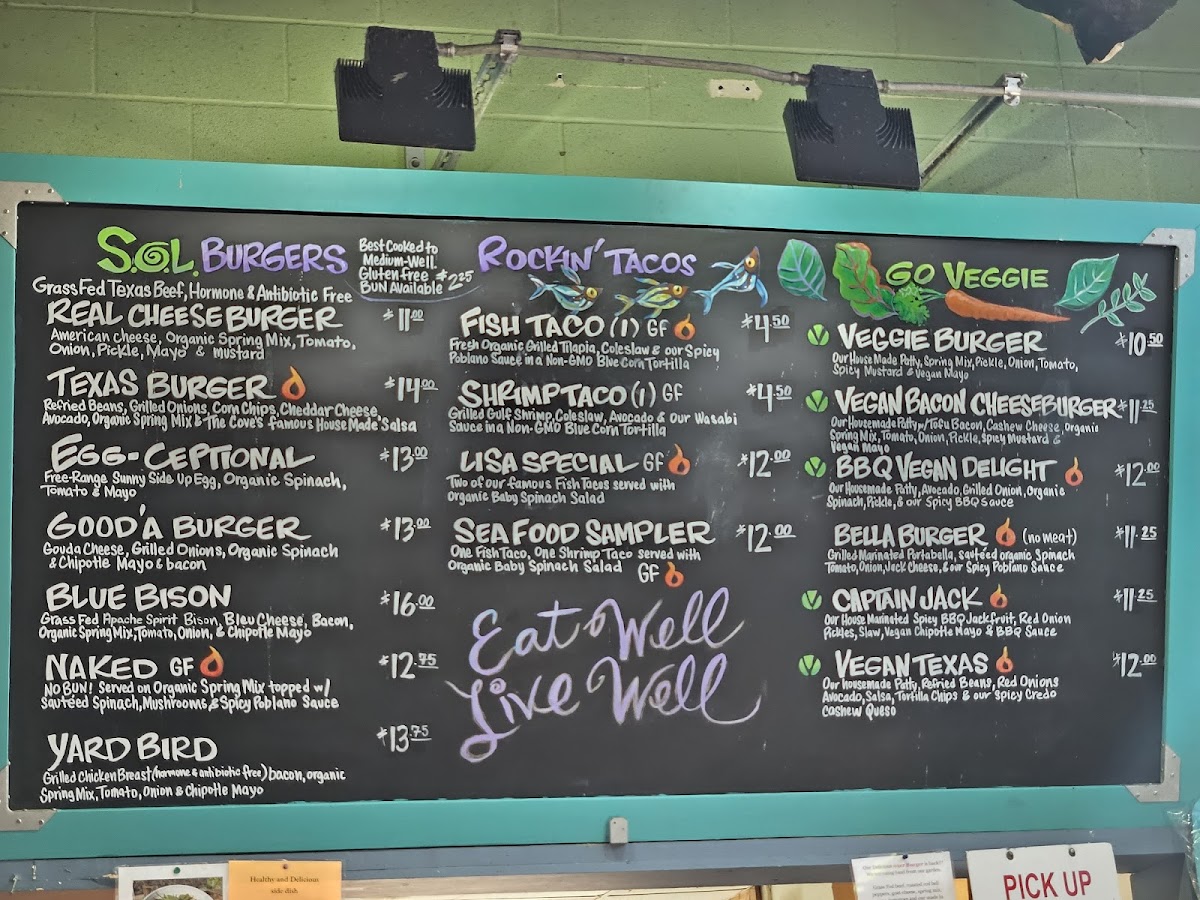 S.O.L. BURGERS
Best Cooked to
Medium-Well.
Gluten free
BUN Available $2.25
Grass Fed Texas Beef, Hormone & Antibiotic Free
REAL CHEESEBURGER $11.00
American Cheese, Organic Spring Mix, Tomato,
Onion, Pickle, Mayo & mustard
TEXAS BURGER $14.00
Refried Beans, Grilled Onions, Corn Chips, Cheddar Cheese,
Avocado, Organic Spring Mix & The Cove's famous House Made Salsa
EGG-CEPTIONAL $13.00
Free-Range Sunny Side Up Egg, Organic Spinach,
Tomato & Mayo
GOOD'A BURGER $13.00
Gouda Cheese, Grilled Onions, Organic Spinach
& Chipotle Mayo & bacon
BLUE BISON $16.00
Grass Fed Apache Spirit Bison, Bleu Cheese, Bacon,
Organic Spring Mix, Tomato, Onion, & Chipotle Mayo
NAKED GF $12.75
NO BUN! Served on Organic Spring Mix topped w/
Sautéed Spinach, Mushrooms & Spicy Poblano Sauce
YARD BIRD $13.75
Grilled Chicken Breast (hormone & antibiotic free) bacon, organic
Spring Mix, Tomato, Onion & Chipotle Mayo
ROCKIN' TACOS
FISH TACO (1) GF $4.50
Fresh Organic Grilled Tilapia, Coleslaw & our Spicy
Poblano Sauce in a Non-GMO Blue Corn Tortilla
SHRIMP TACO (1) GF $4.50
Grilled Gulf Shrimp, Coleslaw, Avocado & Our Wasabi
Sauce in a Non-GMO Blue Corn Tortilla
LISA SPECIAL GF $12.00
Two of our famous Fish Tacos served with
Organic Baby Spinach Salad
SEAFOOD SAMPLER $12.00
One Fish Taco, One Shrimp Taco served with
Organic Baby Spinach Salad GF
Eat Well
Live Well
GO VEGGIE
VEGGIE BURGER $10.50
Our House Made Patty, Spring Mix, Pickle, Onion, Tomato,
Spicy Mustard & Vegan Mayo
VEGAN BACON CHEESEBURGER $11.25
Our Housemade Patty w/Tofu Bacon, Cashew Cheese, Organic
Spring Mix, Tomato, Onion, Pickle, Spicy Mustard &
Vegan Mayo
BBQ VEGAN DELIGHT $12.00
Our Housemade Patty, Avocado, Grilled Onion, Organic
Spinach, Pickle, & our Spicy BBQ Sauce
BELLA BURGER (no meat) $11.25
Grilled Marinated Portabella, sautéed organic Spinach
Tomato, Onion, Jack Cheese, & our Spicy Poblano Sauce
CAPTAIN JACK $11.25
Our House Marinated Spicy BBQ Jackfruit, Red Onion
Pickles, Slaw, Vegan Chipotle Mayo & BBQ Sauce
VEGAN TEXAS $12.00
Our housemade Patty, Refried Beans, Red Onions
Avocado, Salsa, Tortilla Chips & our Spicy Credo
Cashew Queso
Healthy and Delicious
side dish
PICK UP